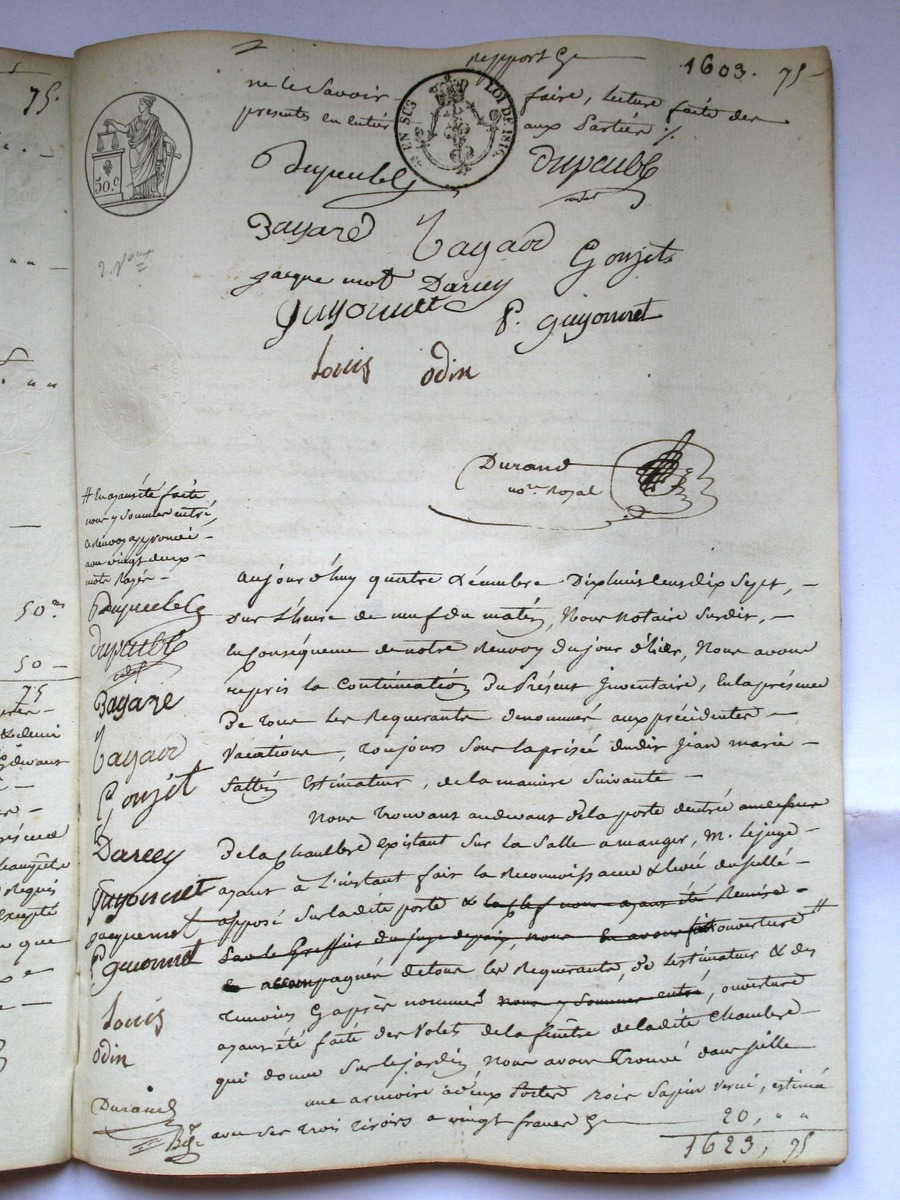 Rapport &e 1603. 75
ne le Savoir faire, lecture faite des
presentes en entier aux Parties ./.
EN SUS
LOI DE 1816.
50.c
Dupeuble
dupeuble
cadet
Bayare
Bayard
Goujet
jacquemot
Darcey
guyonnet
P. guyonnet
Louis odin
Durand
no.re Royal
# En ayant été faite
nous y sommes entré,
ce renvoy approuvé
avec vingt deux
mots Rayés
Dupeuble
dupeuble
cadet
Bayare
Bayard
Goujet
Darcey
guyonnet
jacquemot
P. guionnet
Louis
odin
Durand
Aujourd'huy quatre décembre Dix huit cent dix Sept,
Sur l'heure de neuf du matin, Nous Notaire Susdit,
En Conséquence de notre Renvoy du jour d'hier, Nous avons
repris la Continuation du Présent Inventaire, En la présence
de tous les Requerants denommés aux précédentes
Vacations, toujours Sous la prisée dudit Jean marie
Sallés Estimateur, de la maniere Suivante
Nous Trouvant au devant de la porte d'entrée
de la Chambre existant Sur la Salle a manger, M. le juge
ayant à L'instant fait la Reconnoissance & levée du Scellé
apposé Sur ladite porte & la clef nous ayant été Remise
par le Greffier du juge de paix, nous En avons fait ouverture #
& accompagnés de tous les Requerants, de l'estimateur & des
temoins Cy après nommés nous y Sommes entré, ouverture
ayant été faite des Volets de la fenêtre de la dite Chambre
qui donne Sur le jardin, Nous avons Trouvé dans icelle
une armoire à deux Portes bois Sapin verni, estimée
avec Ses trois tiroirs a vingt francs &e 20, " "
1623, 75
75.
50 es
50
75